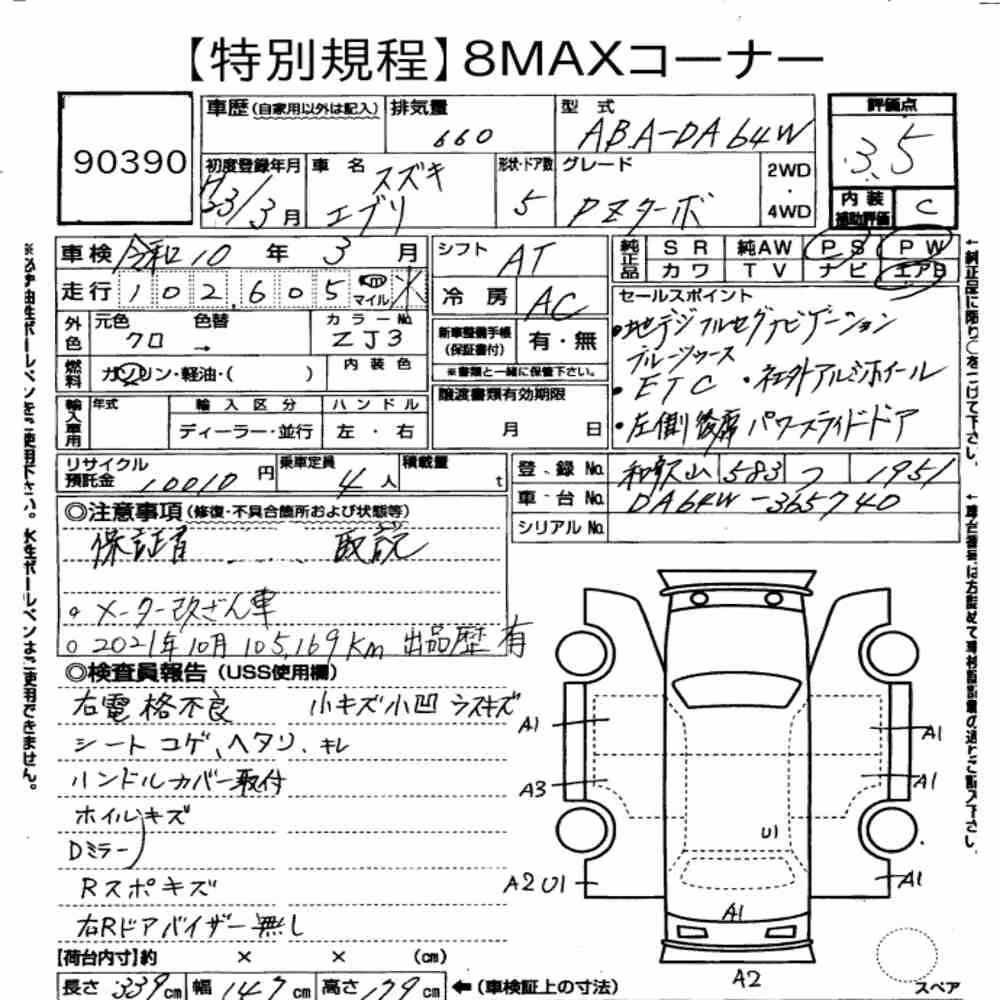 【特別規程】8MAXコーナー
90390
車歴(自家用以外は記入) 排気量 型式
660 ABA-DA64W
評価点
3.5
初度登録年月 車名 形状・ドア数 グレード 2WD
スズキ
33/3月 エブリ 5 PZターボ ・
4WD
内装
補助評価 C
車検 令和10年3月
シフト AT
純正品 SR 純AW PS PW
カワ TV ナビ エアB
走行 102,605 km マイル ※
冷房 AC
セールスポイント
外色 元色 色替 カラーNo.
クロ → ZJ3
新車整備手帳 有・無
(保証書付)
※書類と一緒に保管下さい。
・地デジフルセグナビゲーション
ブルーツゥース
・ETC ・社外アルミホイール
・左側後席パワースライドドア
燃料 ガソリン・軽油・( ) 内装色
譲渡書類有効期限
月 日
輸入車用 年式 輸入区分 ハンドル
ディーラー・並行 左・右
リサイクル
預託金 10010円 乗車定員 4人 積載量 t
登録No. 和歌山 583 つ 1951
車台No. DA64W-365740
シリアルNo.
◎注意事項(修復・不具合箇所および状態等)
保証書 取説
○メーター改ざん車
○2021年10月 105,169Km 出品歴有
◎検査員報告(USS使用欄)
右電格不良 小キズ小凹 ウスキズ
シート コゲ、ヘタリ、キレ
ハンドルカバー取付
ホイルキズ
Dミラー
Rスポキズ
右Rドアバイザー無し
【荷台内寸】約 × × (cm)
長さ 339cm 幅 147cm 高さ 179cm ←(車検証上の寸法)
A1
A3
A2 U1
A1
A1
A1
U1
A1
A2
スペア
←純正品に限り○をつけて下さい。
←車台番号は右詰めで車検証記載の通りご記入下さい。